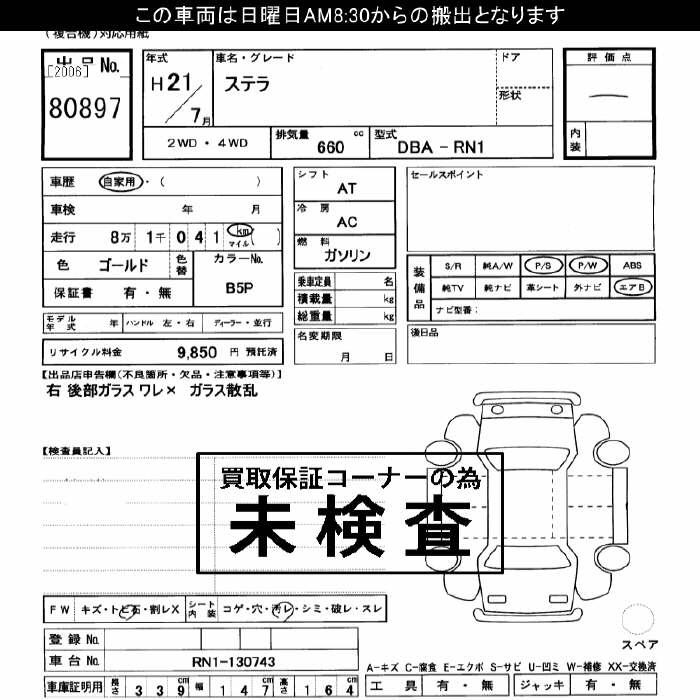 この車両は日曜日AM8:30からの搬出となります
(複合機)対応用紙
出品No.
[2006]
80897
年式
H21/7月
車名・グレード
ステラ
ドア
形状
評価点
内装
2WD・4WD
排気量 660 cc
型式 DBA-RN1
車歴 自家用・( )
車検 年 月
走行 8万 1千 0 4 1 km マイル ( )
色 ゴールド
色替
カラーNo. B5P
保証書 有・無
シフト AT
冷房 AC
燃料 ガソリン
乗車定員 名
積載量 kg
総重量 kg
セールスポイント
装備品
S/R 純A/W P/S P/W ABS
純TV 純ナビ 革シート 外ナビ エアB
ナビ型番:
モデル年式 年 ハンドル 左・右 ディーラー・並行
リサイクル料金 9,850 円 預託済
名変期限
月 日
後日品
【出品店申告欄(不良箇所・欠品・注意事項等)】
右 後部ガラス ワレ× ガラス散乱
【検査員記入】
買取保証コーナーの為
未検査
FW キズ・トビ石・割レX シート内装 コゲ・穴・汚レ・シミ・破レ・スレ
登録No.
車台No. RN1-130743
車庫証明用 長さ 339cm 幅 147cm 高さ 164cm
スペア
A-キズ C-腐食 E-エクボ S-サビ U-凹ミ W-補修 XX-交換済
工具 有・無 ジャッキ 有・無